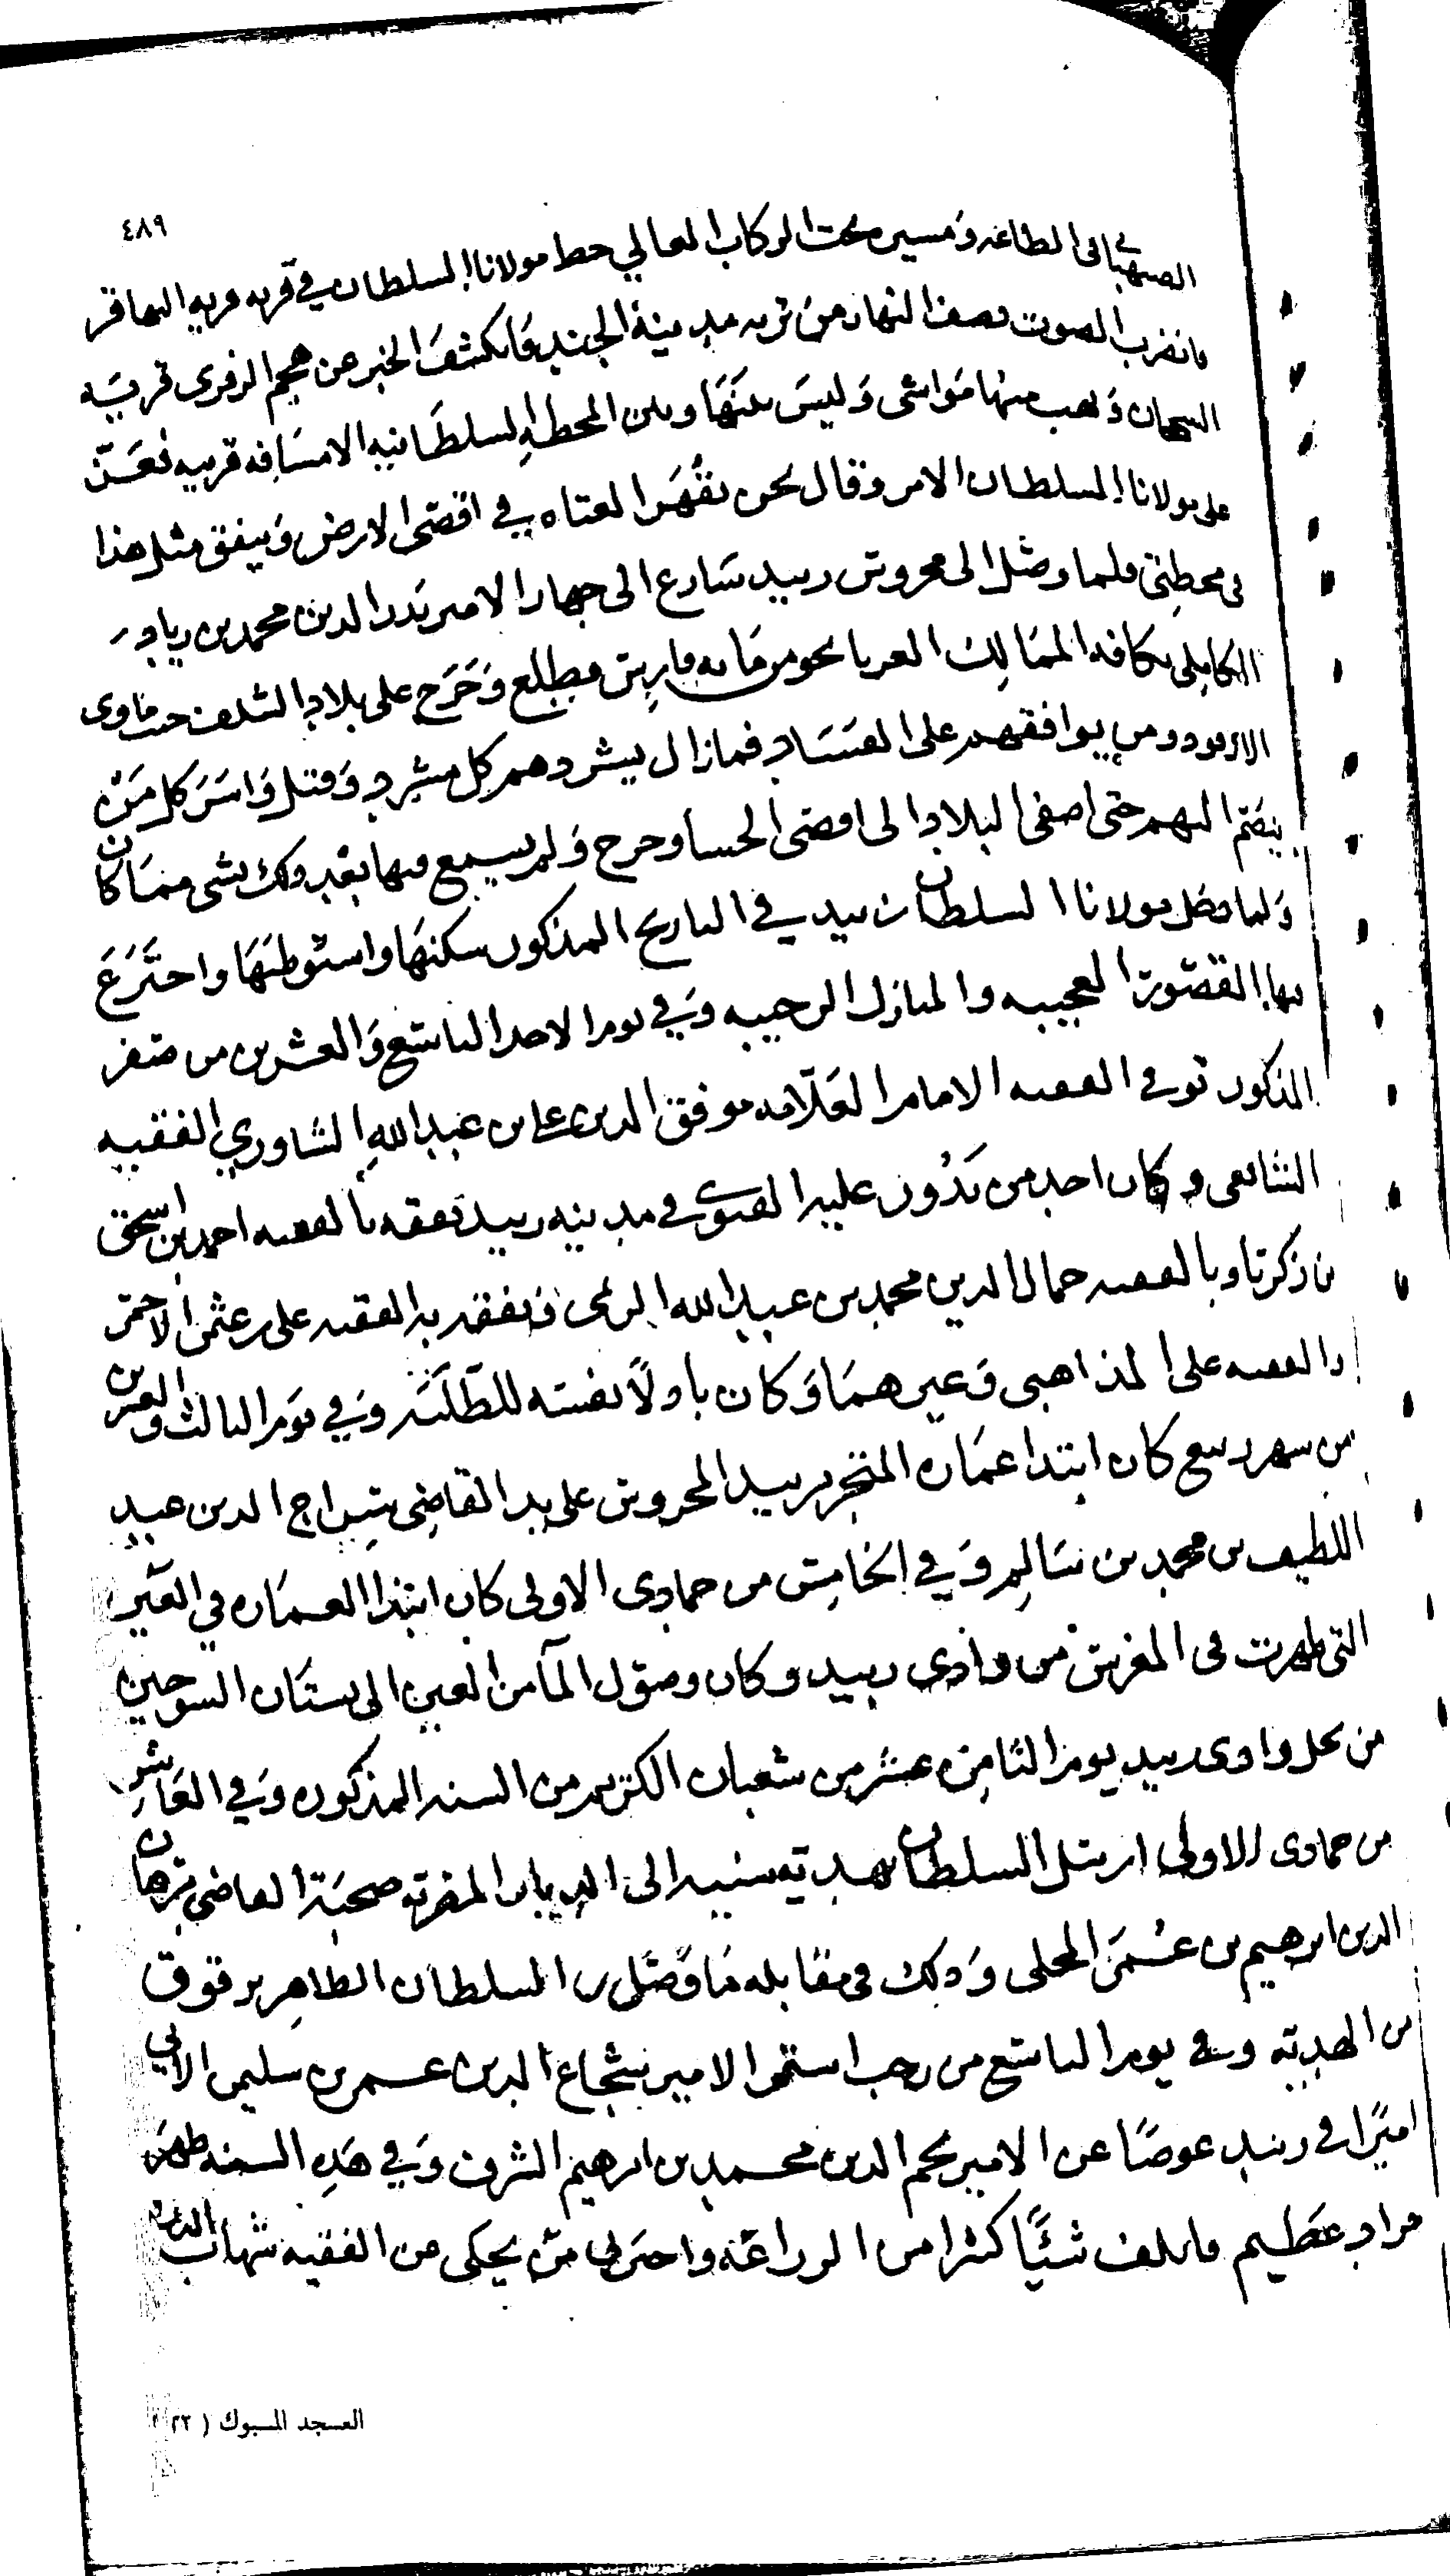 ٤٨٩
الصهباني في الطاعه ومسير تحت الركاب العالي حط مولانا السلطان في قربه قريه
فانضرب الصوت نصف النهار من تربه مدينة الجند فانكشف الخبر عن هجم قريه
ونهب منها مواشي وليس بينها وبين المحطه السلطانيه الا مسافه قريبه فعز
على مولانا السلطان الامر وقال نحن نقهر العتاه في اقصى الارض ويتفق مثل هذا
في محطتي فلما وصل الى محروس زبيد سارع الى جهار الامير بدر الدين محمد بن زياد
الكاملي بكافه المماليك الغربا نحو من مايه فارس وطلع وخرج على بلاد
ومن يوافقهم على الفساد فمازال يشردهم كل مشرد وقتل واسر كل من
ينضم اليهم حتى اصفى البلاد الى اقصى وحرج ولم يسمع فيها بعد ذلك بشى مما كان
ولما وصل مولانا السلطان زبيد في التاريخ المذكور سكنها واستوطنها واخترع
بها القصور العجيبه والمنازل الرحيبه وفي يوم الاحد التاسع والعشرين من صفر
المذكور توفي الفقيه الامام العلامه موفق الدين علي بن عبد الله الشاوري الفقيه
الشافعي وكان احد من تدور عليه الفتوى في مدينه زبيد تفقه بالفقيه احمد بن اسحق
بن زكريا وبالفقيه جمال الدين محمد بن عبد الله الريمي وتفقه به الفقيه علي بن عثمن الاحمر
والفقيه علي المذاهبي وغيرهما وكان باذلاً نفسه للطلبة وفي يوم الثالث والعشرين
من شهر ربيع كان ابتدا عماره المتجر بزبيد المحروس على يد القاضي سراج الدين عبد
اللطيف بن محمد بن سالم وفي الخامس من جمادى الاولى كان ابتدا العماره في العين
التي ظهرت في المغرس من وادي زبيد وكان وصول المآ من العين الى بستان السوجين
من نخل وادي زبيد يوم الثامن عشر من شعبان الكريم من السنه المذكوره وفي العاشر
من جمادى الاولى ارسل السلطان بهديه سنيه الى الديار المصريه صحبة القاضي برهان
الدين ابرهيم بن عمر المحلي وذلك في مقابله ما وصل من السلطان الظاهر برقوق
من الهديه وفي يوم التاسع من رجب استمر الامير شجاع الدين عمر بن سليمن الابي
اميرا في زبيد عوضًا عن الامير نجم الدين محمد بن ابرهيم الشرف وفي هذه السنه ظهر
جراد عظيم فاتلف شيًا كثيرا من الزراعه واخبرني من يحكي عن الفقيه شهاب الدين
العسجد المسبوك (